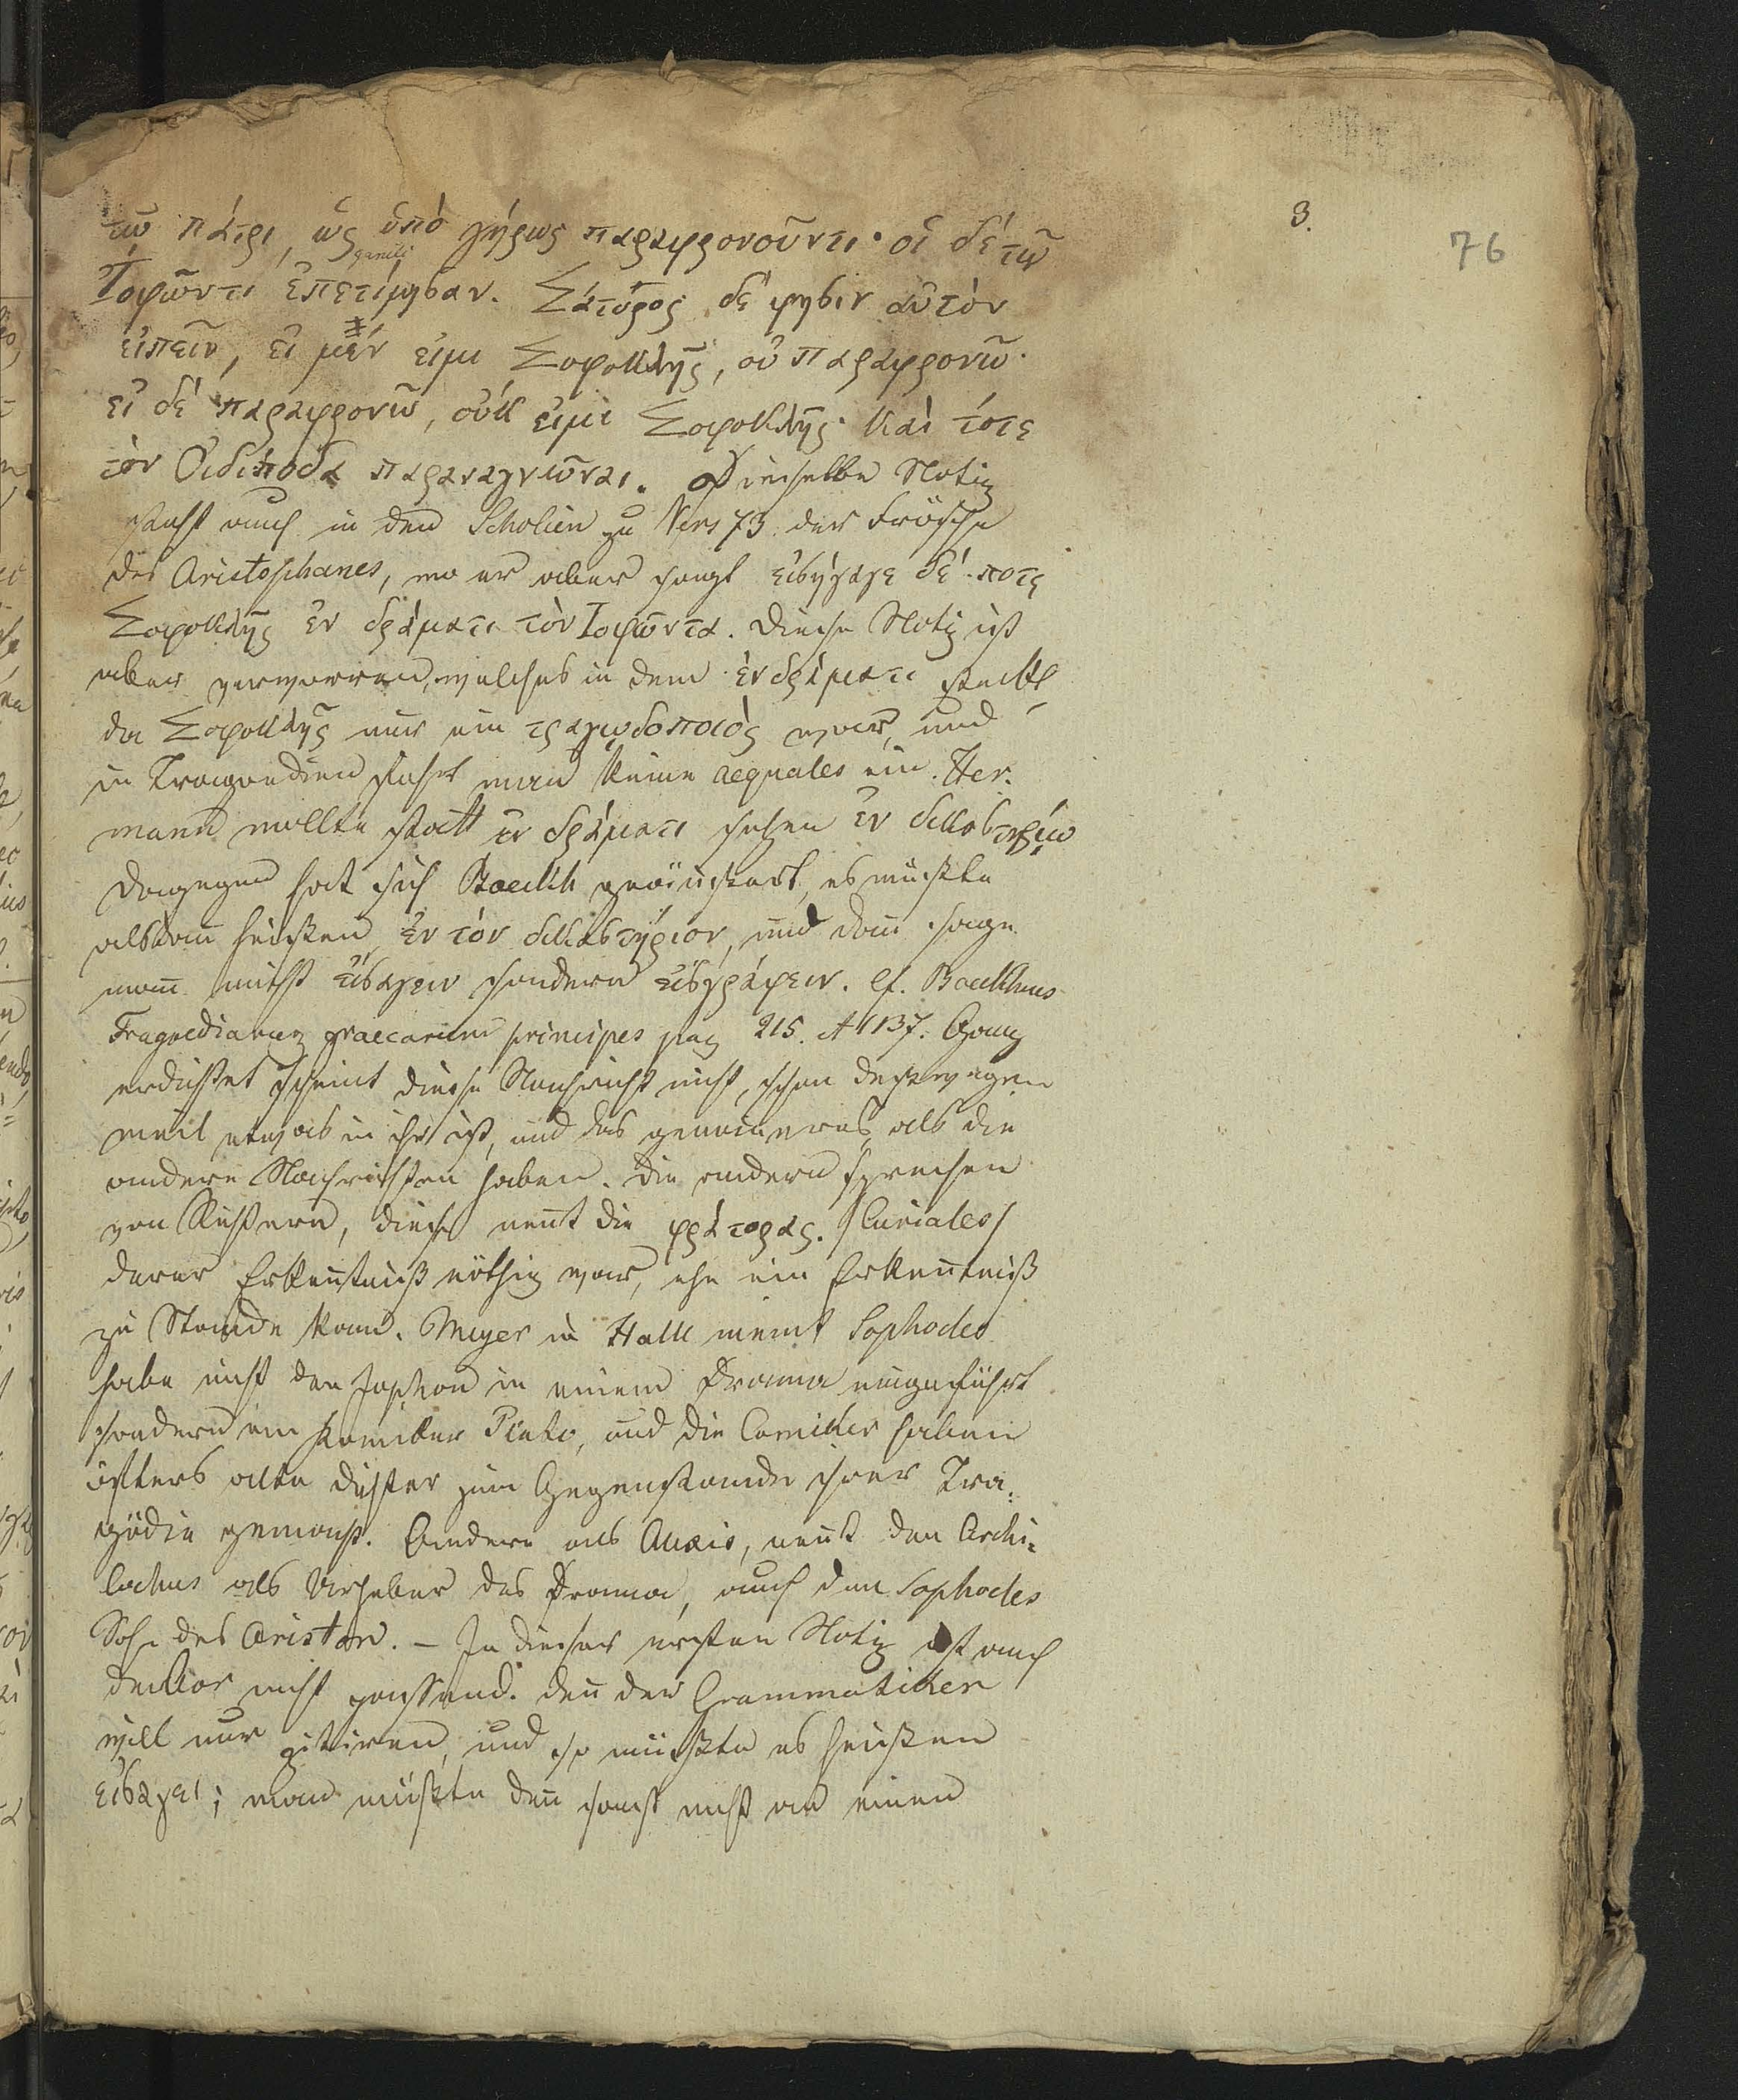 3.
76
τῷ πάτρι, ὡς ὑπὸ γήρως παραφρονοῦντι· οἱ δὲ τῷ
Ἰοφῶντι ἐπετίμησαν. Σάτυρος δέ φησιν αὐτὸν
εἰπεῖν, εἰ μέν εἰμι Σοφοκλῆς, οὐ παραφρονῶ·
εἰ δὲ παραφρονῶ, οὐκ εἰμὶ Σοφοκλῆς· καὶ τότε
τὸν Οἰδίποδα παραναγνῶναι. Dieselbe Notiz
steht auch in den Scholien zu Vers 73 der Frösche
des Aristophanes, wo er aber sagt εἰσήγαγε δέ ποτε
Σοφοκλῆς ἐν δράματι τὸν Ἰοφῶντα. Diese Notiz ist
aber verworren, welches in dem ἐν δράματι steckt
da Σοφοκλῆς nur ein τραγῳδοποιὸς war, und
in Tragoedien führt man keine aequales ein. Her-
mann wollte statt ἐν δράματι setzen ἐν δικαστηρίῳ
dagegen hat sich Boeckh geäussert, es müsste
alsdann heissen ἐν τὸν δικαστήριον, und dann sage
man nicht εἰσάγειν sondern εἰσγράφειν. cf. Boeckhius
Tragoediarum graecarum principes pag 215. et 137. Ganz
erdichtet scheint diese Nachricht nicht, schon desswegen
weil etwas in ihr ist, und das genaueres, als die
andern Nachrichten haben. Die andern sprechen
von Richtern, dieser nennt die φράτορας. /Curiales/
derer Erkenntniß nöthig war, ehe ein Erkenntniß
zu Stande kam. Meyer in Halle meint Sophocles
habe nicht den Jophon in einem Drama eingeführt
sondern ein Komiker Plato, und die Comiker haben
öfters alte Dichter zum Gegenstande ihrer Tra-
gödie gemacht. Andere als Alexis, nennt den Archi-
lochus als Urheber des Drama, auch den Sophocles
Sohn des Ariston. – In dieser ersten Notiz ist auch
nicht passend. denn der Grammatiker
will nur zitiren, und so müsste es heissen
εἰσάγει; man müsste denn sonst nicht an einen